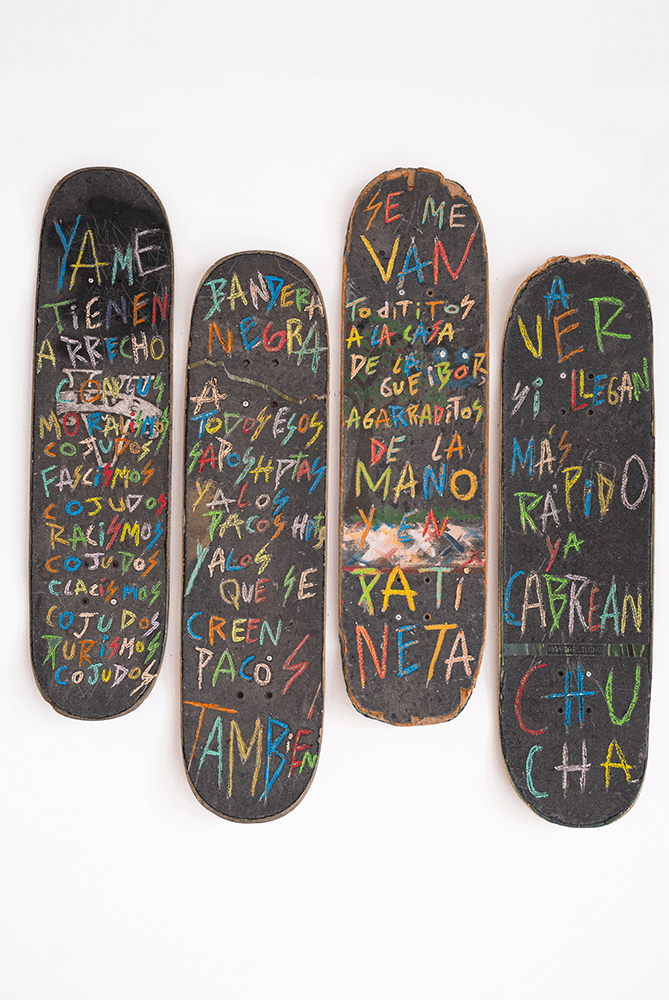 YA ME
TIENEN
ARRECHO
MORALISMOS
COJUDOS
FASCISMOS
COJUDOS
RACISMOS
COJUDOS
CLACISMOS
COJUDOS
PURISMOS
COJUDOS
BANDERA
NEGRA
A
TODOS ESOS
SAPOS HPTAS
Y A LOS
PACOS
Y A LOS
QUE SE
CREEN
PACOS
TAMBIEN
SE ME
VAN
TODITITOS
A LA CASA
DE LA
GUEIBOR
AGARRADITOS
DE LA
MANO
Y EN
PATI
NETA
A
VER
SI LLEGAN
MÁS
RÁPIDO
YA
CABREAN
CHU
CHA